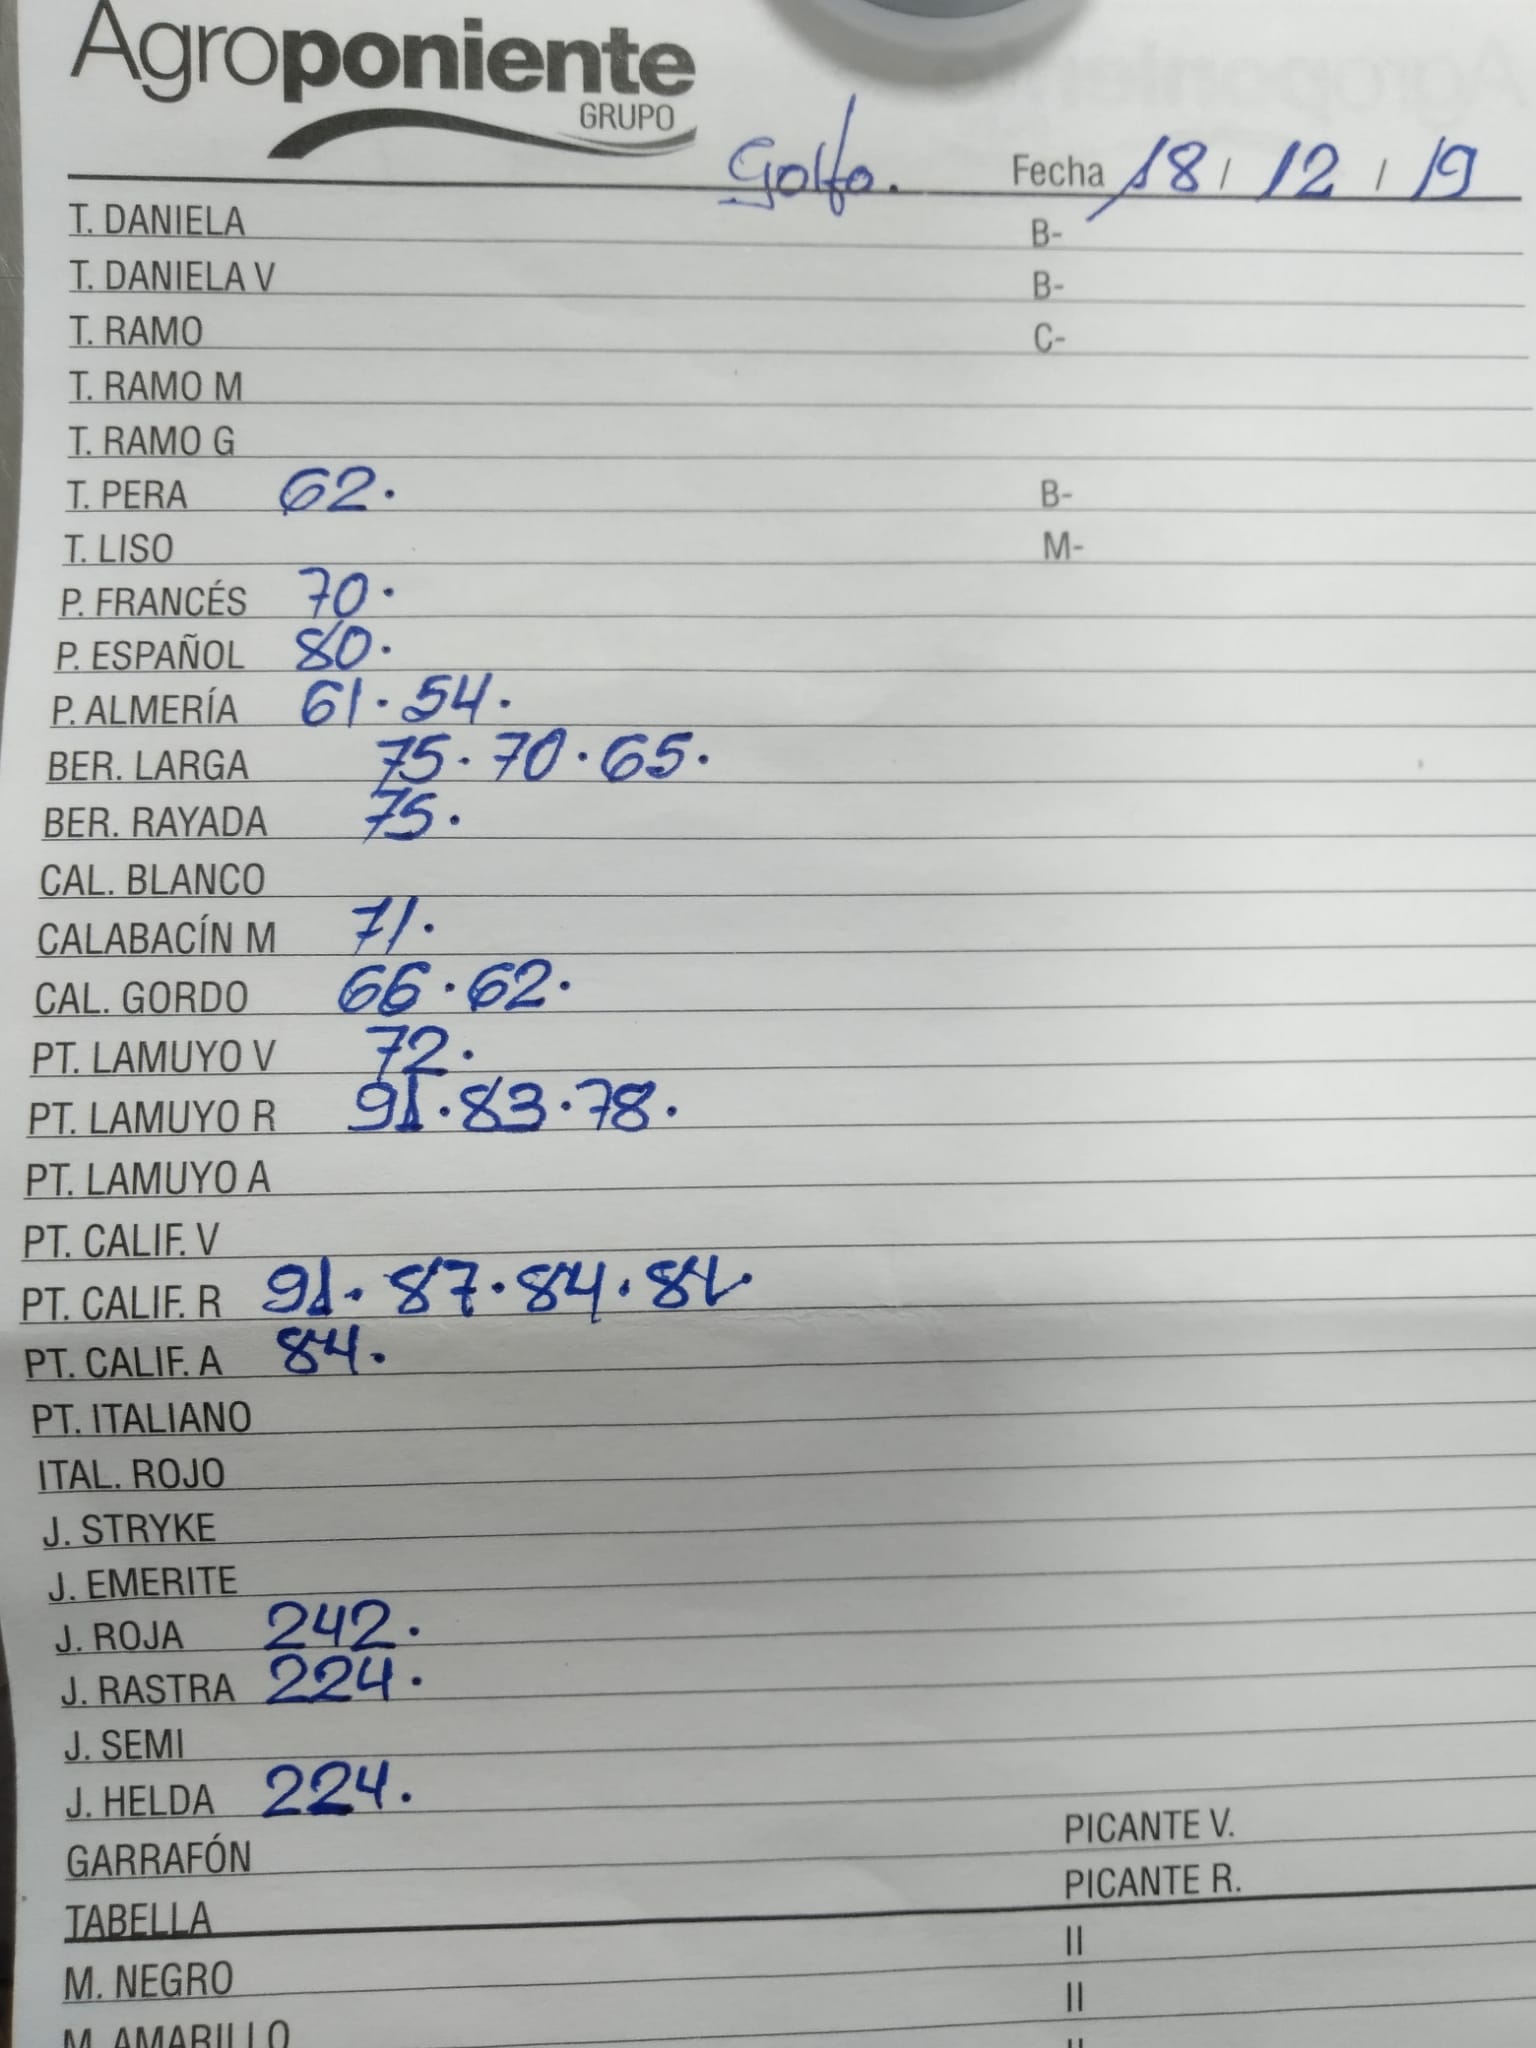 Agroponiente
GRUPO
Golfo. Fecha 18 / 12 / 19
T. DANIELA B-
T. DANIELA V B-
T. RAMO C-
T. RAMO M
T. RAMO G
T. PERA 62. B-
T. LISO M-
P. FRANCÉS 70.
P. ESPAÑOL 80.
P. ALMERÍA 61. 54.
BER. LARGA 75. 70. 65.
BER. RAYADA 75.
CAL. BLANCO
CALABACÍN M 71.
CAL. GORDO 66. 62.
PT. LAMUYO V 72.
PT. LAMUYO R 91. 83. 78.
PT. LAMUYO A
PT. CALIF. V
PT. CALIF. R 91. 87. 84. 81.
PT. CALIF. A 84.
PT. ITALIANO
ITAL. ROJO
J. STRYKE
J. EMERITE
J. ROJA 242.
J. RASTRA 224.
J. SEMI
J. HELDA 224.
GARRAFÓN PICANTE V.
TABELLA PICANTE R.
M. NEGRO II
M. AMARILLO II